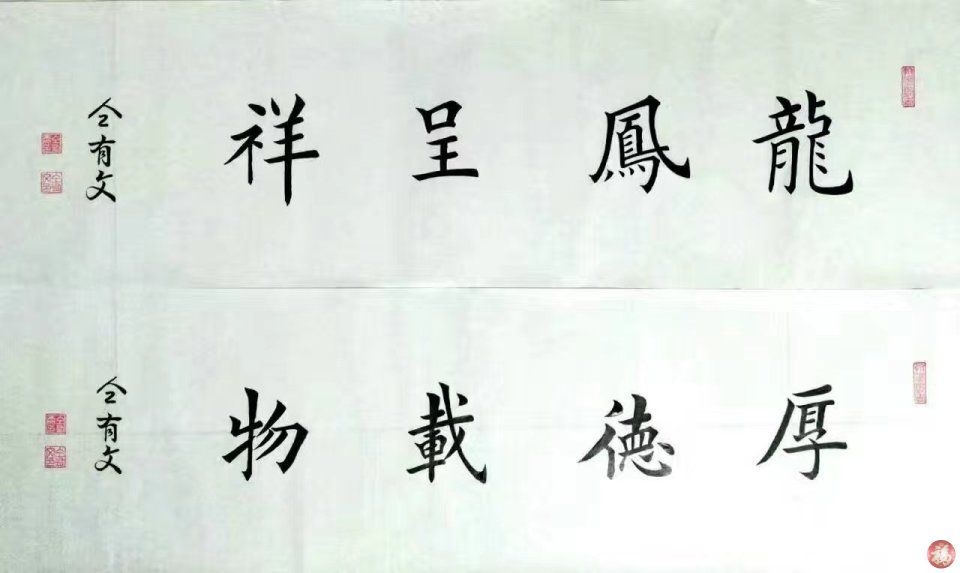 龍鳳呈祥
仝有文
厚德載物
仝有文
福